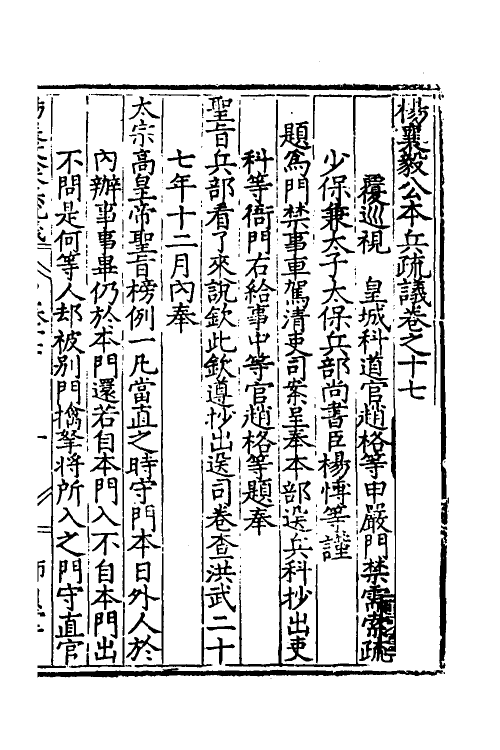 楊襄毅公本兵疏議卷之十七
覆巡視　皇城科道官趙格等申嚴門禁需索疏
少保兼太子太保兵部尚書臣楊博等謹
題爲門禁事車駕清吏司案呈奉本部送兵科抄出吏
科等衙門右給事中等官趙格等題奉
聖旨兵部看了來說欽此欽遵抄出送司卷查洪武二十
七年十二月內奉
太宗高皇帝聖旨榜例一凡當直之時守門本日外人於
內辦事事畢仍於本門還若自本門入不自本門出
不問是何等人却被别門擒拏將所入之門守直官